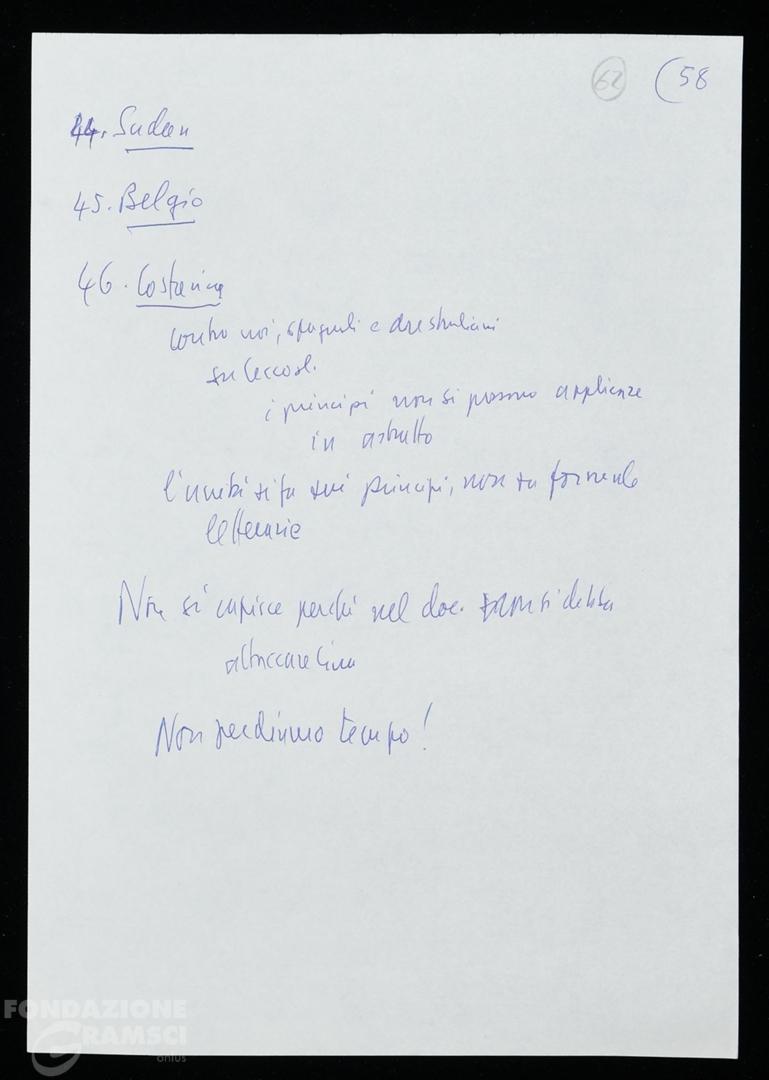 62 (58
44. Sudan
45. Belgio
46. Costarica
contro noi, spagnoli e australiani
su Cecosl.
i principi non si possono applicare
in astratto
l'unità si fa sui principi, non su formule
letterarie
Non si capisce perché nel doc. non si debba
attaccare Cina
Non perdiamo tempo!
FONDAZIONE
GRAMSCI
onlus